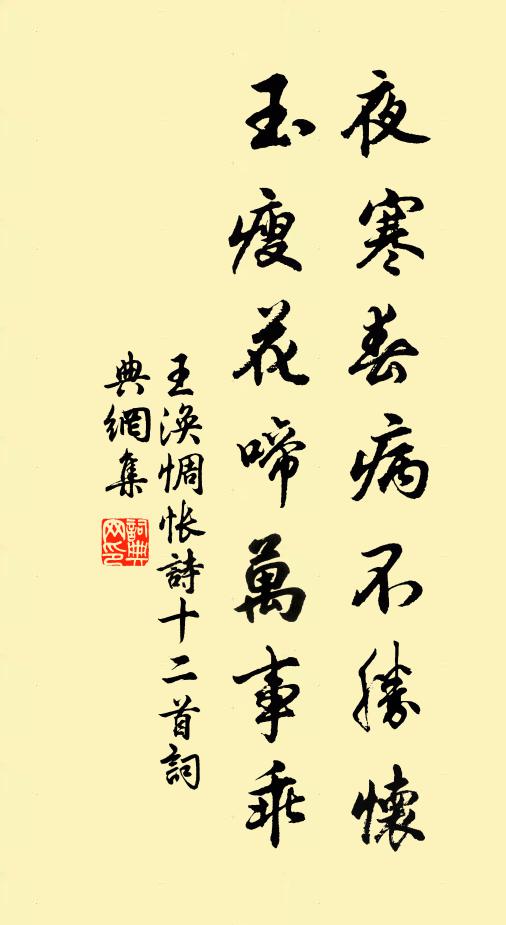 夜寒春病不勝懷
玉瘦花啼萬事乖
王渙惆悵詩十二首詞
典網集
詞典網印